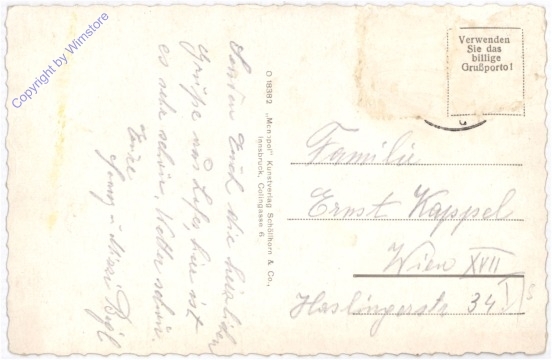 Copyright by Wimstore
Senden Euch die herzlichen
Grüße aus hier ist
es sehr schön, Wetter schön.
Eure
O 18382 „Monopol" Kunstverlag Schöllhorn & Co.,
Innsbruck, Colingasse 6
Verwenden
Sie das
billige
Grußporto!
Familie
Ernst Kappel
Wien XVII
Haslingerstr 34